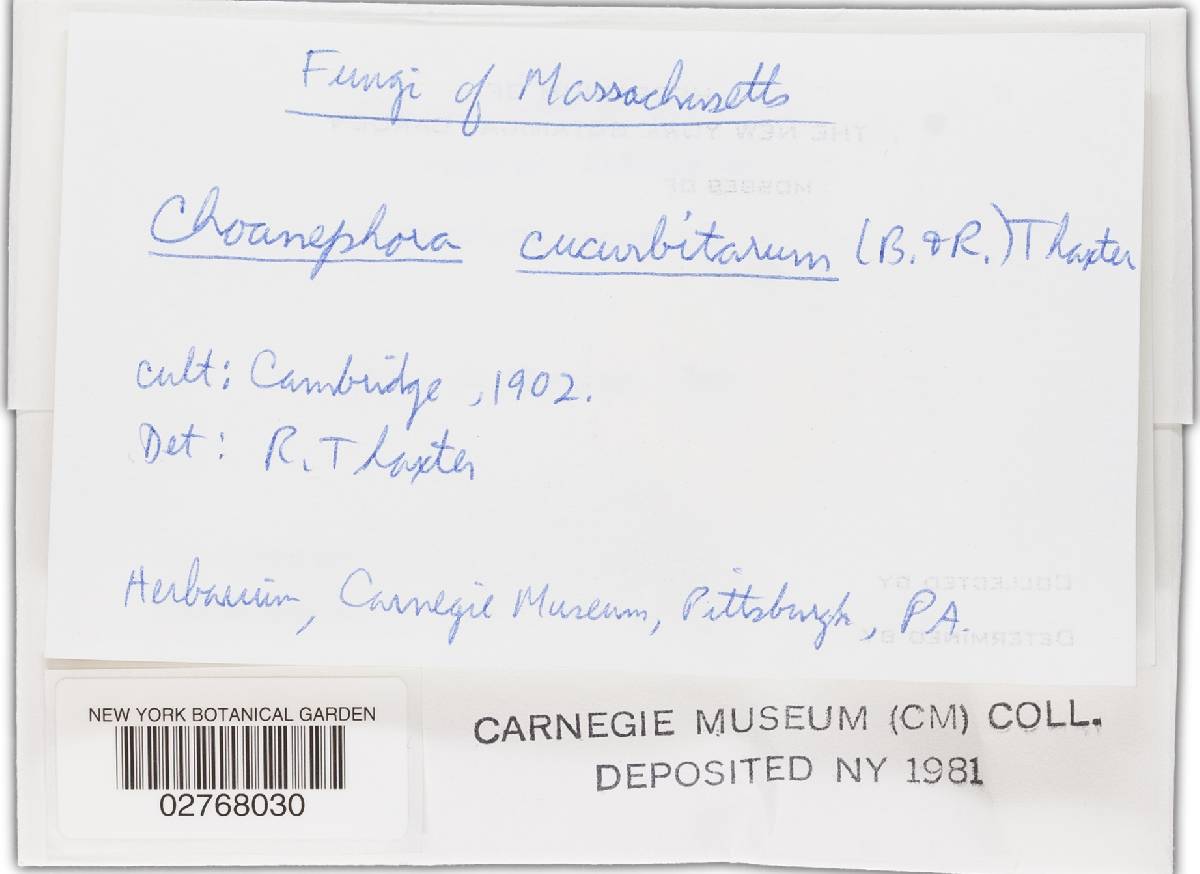 Fungi of Massachusetts
Choanephora cucurbitarum (B. & R.) Thaxter
cult: Cambridge, 1902.
Det: R. Thaxter
Herbarium, Carnegie Museum, Pittsburgh, PA.
COLLECTED BY
DETERMINED BY
NEW YORK BOTANICAL GARDEN
02768030
CARNEGIE MUSEUM (CM) COLL.
DEPOSITED NY 1981